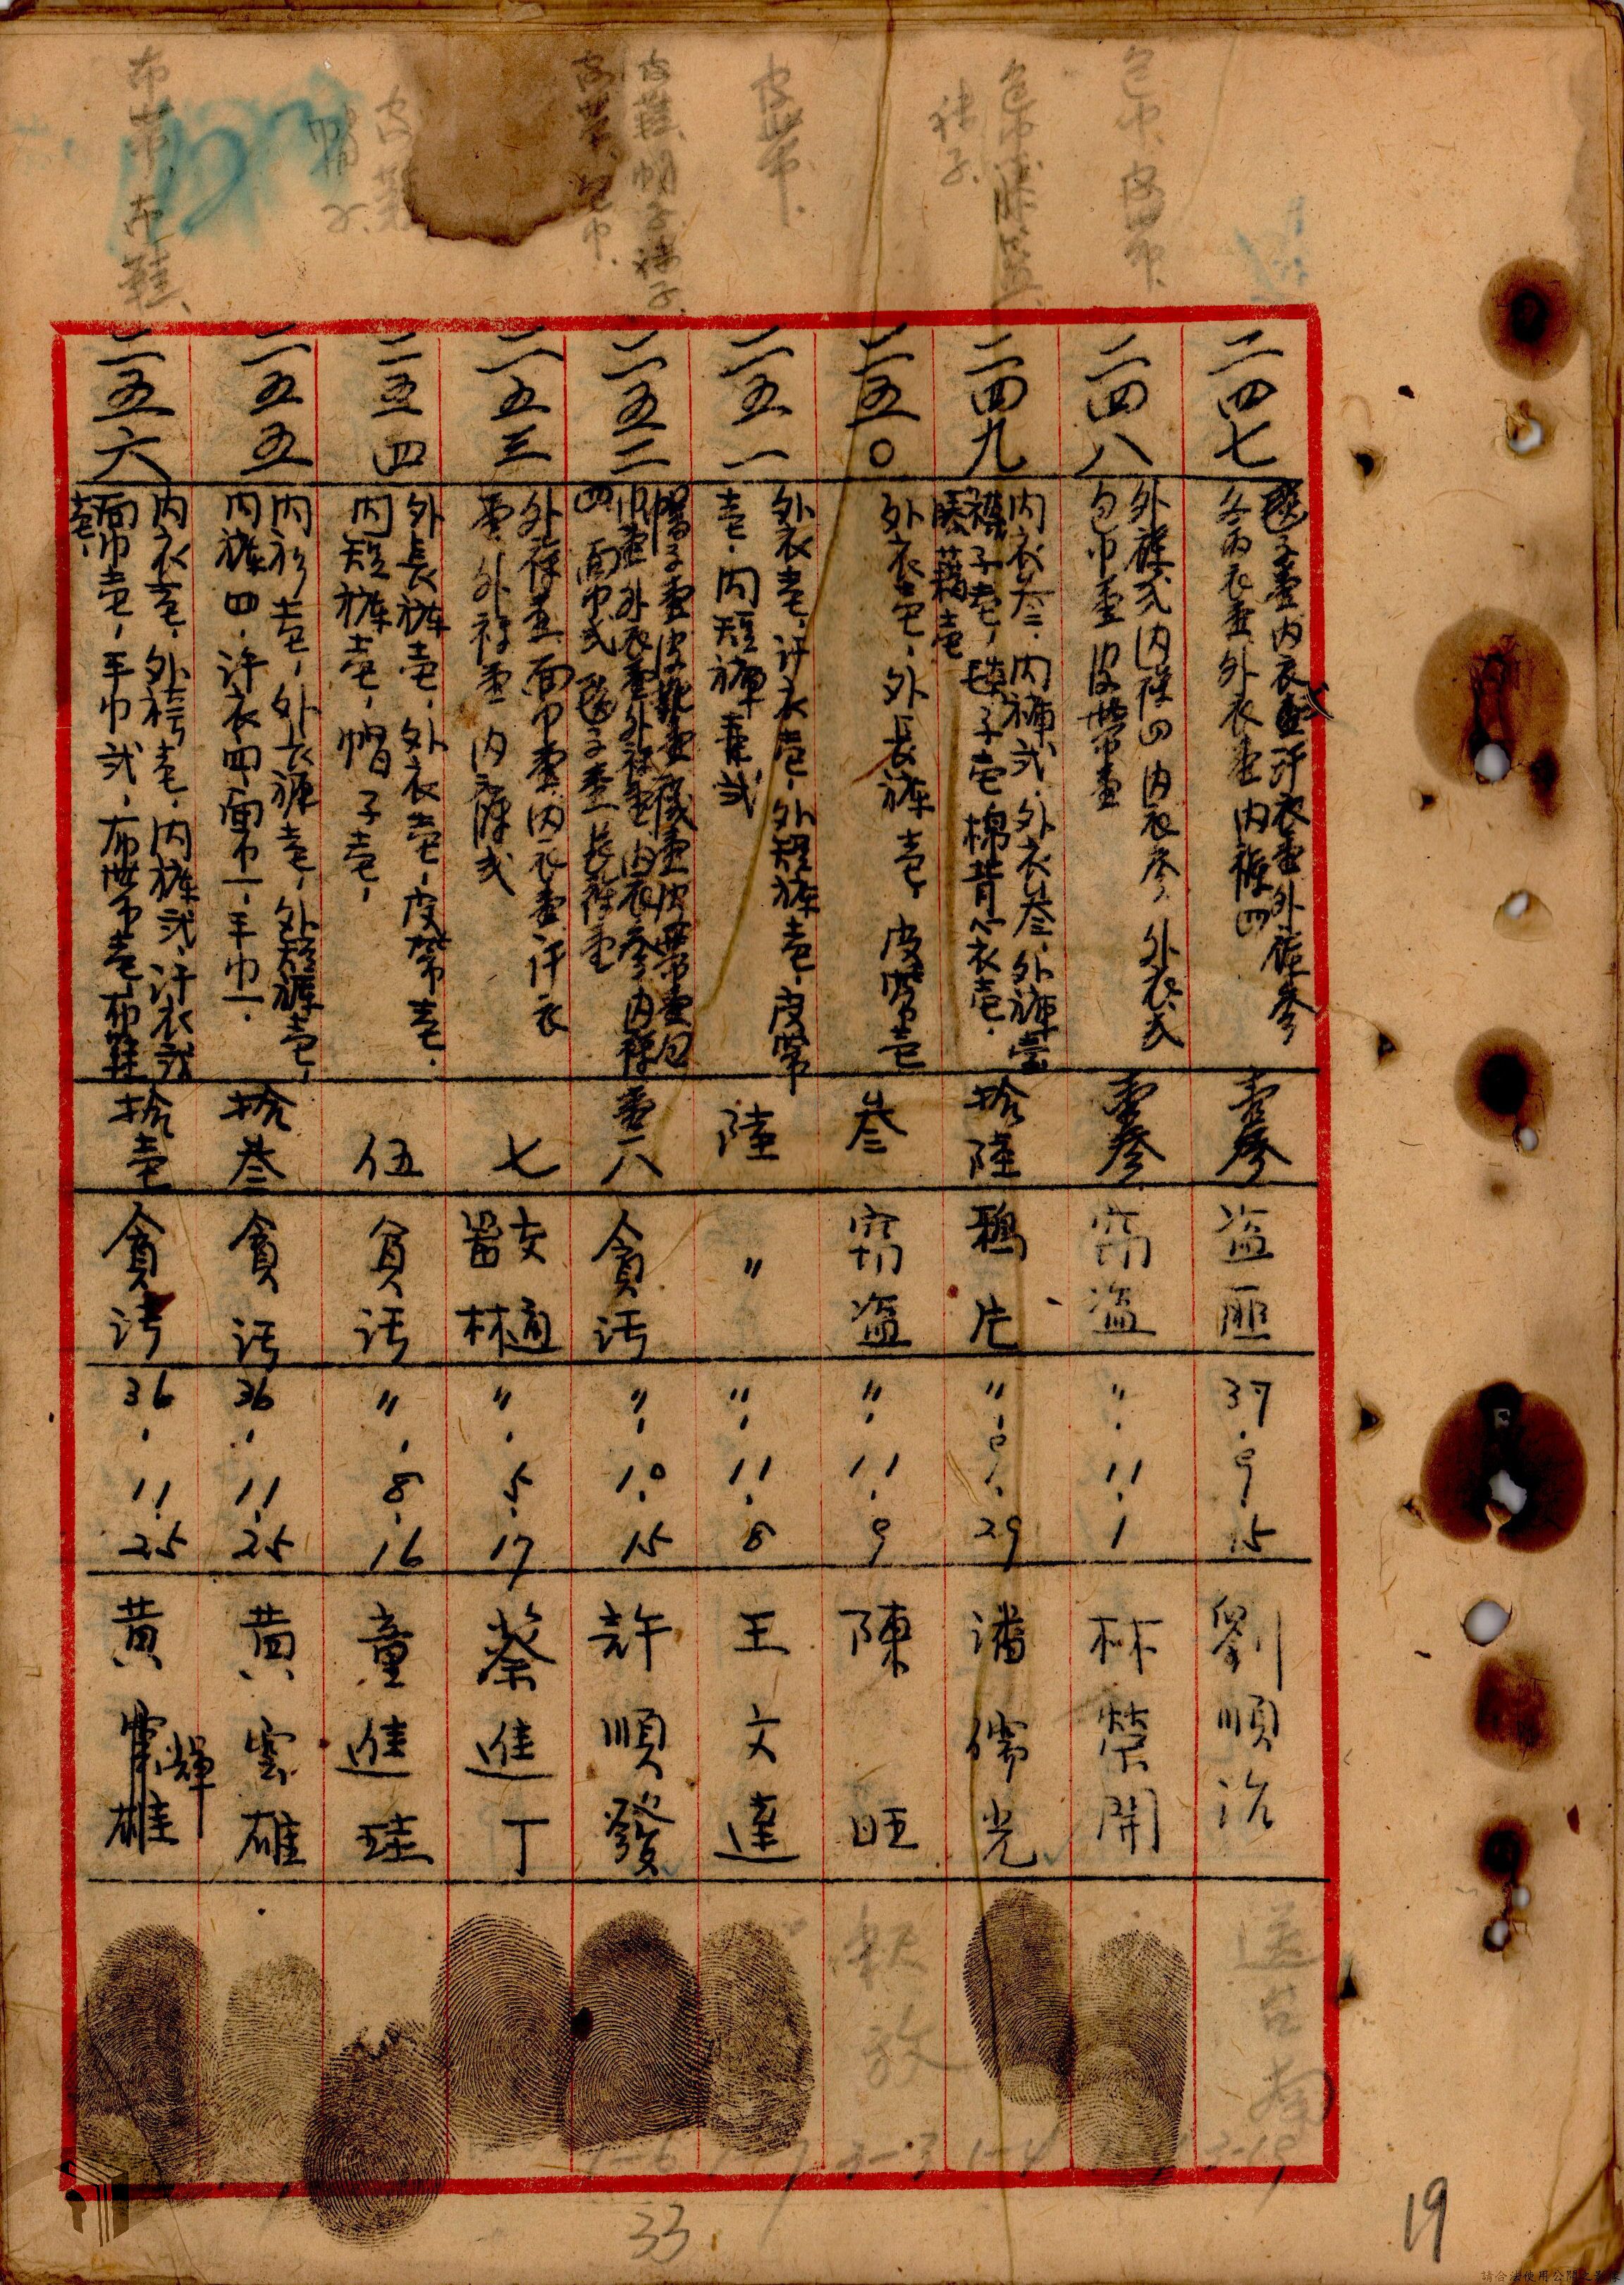 包巾、皮帶、
包巾、
袜子、
皮帶、
皮鞋、帽子、袜子、
皮帶、包巾、
皮鞋
帽子、
布帶、布鞋、
二四七
毯子壹內衣壹汗衣壹外褲參
冬內衣壹外衣壹內褲四
壹參
盜匪
37.9.15
劉順治
送台南
3-19
二四八
外褲弍內褲四內衣參外衣弍
包巾壹皮帶壹
壹參
竊盜
〃.11.1
林榮開
二四九
內衣叁、內褲弍、外衣叁、外褲壹
襪子壹、毯子壹棉背心衣壹、
壹
拾陸
鴉片
〃.9.29
潘儒光
1-4
二五〇
外衣壹、外長褲壹、皮帶壹
叁
竊盜
〃.11.9
陳旺
釈放
3-3
二五一
外衣壹、汗衣壹、外短褲壹、皮帶
壹、內短褲弍
陸
〃
〃.11.8
王文達
1-7
二五二
帽子壹皮靴壹襪壹皮帶壹包
巾壹外衣壹外褲壹內衣參內褲
四面巾弍毯子壹長褲壹
壹八
貪污
〃.10.15
許順發
1-6
二五三
外褲壹面巾壹內衣壹汗衣
壹外褲壹內褲弍
七
〃.5.17
蔡進丁
二五四
外長褲壹、外衣壹、皮帶壹、
內短褲壹、帽子壹、
伍
貪污
〃.8.16
童進珪
二五五
內衫壹、外衣褲壹、外短褲壹、
內褲四、汗衣四、面巾一、手巾一、
拾叁
貪污
36.11.25
黃雲雄
二五六
內衣壹、外袴壹、內褲弍、汗衣弍
面巾壹、手巾弍、布帶壹、布鞋
壹、
拾壹
貪污
36.11.25
黃
輝
雄
33
19
請合法使用公開之影像